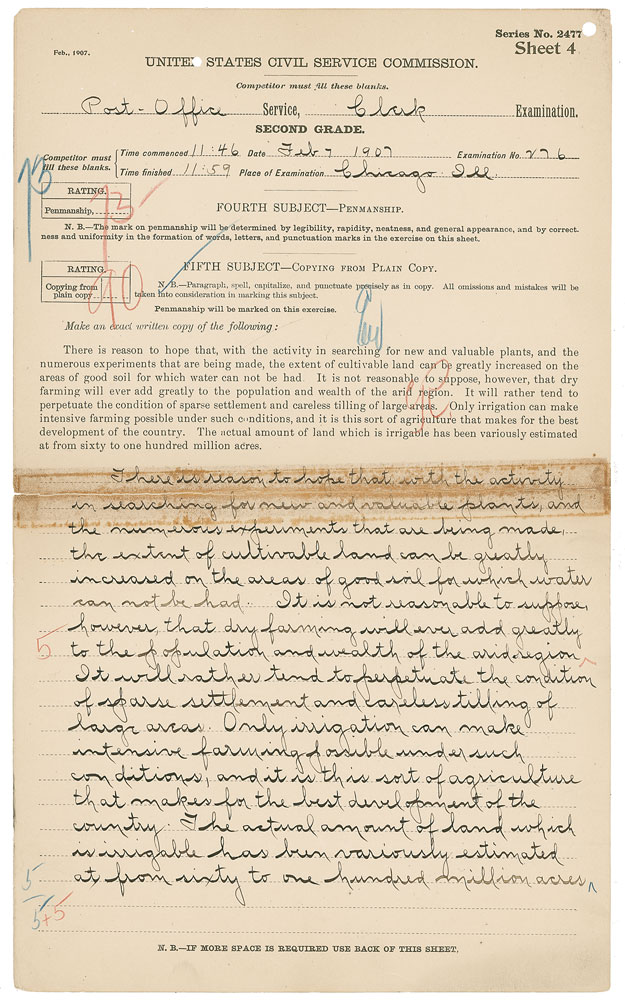 Series No. 2477
Sheet 4
Feb., 1907.
UNITED STATES CIVIL SERVICE COMMISSION.
Competitor must fill these blanks.
Post-Office Service, Clerk Examination.
SECOND GRADE.
Competitor must fill these blanks.
Time commenced 11:46 Date Feb 7 1907 Examination No. 276
Time finished 11:59 Place of Examination Chicago Ill.
75
RATING.
Penmanship,
75
FOURTH SUBJECT—PENMANSHIP.
N. B.—The mark on penmanship will be determined by legibility, rapidity, neatness, and general appearance, and by correct-
ness and uniformity in the formation of words, letters, and punctuation marks in the exercise on this sheet.
RATING.
Copying from
plain copy
90
FIFTH SUBJECT—COPYING FROM PLAIN COPY.
N. B.—Paragraph, spell, capitalize, and punctuate precisely as in copy. All omissions and mistakes will be
taken into consideration in marking this subject.
Penmanship will be marked on this exercise.
Make an exact written copy of the following:
There is reason to hope that, with the activity in searching for new and valuable plants, and the
numerous experiments that are being made, the extent of cultivable land can be greatly increased on the
areas of good soil for which water can not be had. It is not reasonable to suppose, however, that dry
farming will ever add greatly to the population and wealth of the arid region. It will rather tend to
perpetuate the condition of sparse settlement and careless tilling of large areas. Only irrigation can make
intensive farming possible under such conditions, and it is this sort of agriculture that makes for the best
development of the country. The actual amount of land which is irrigable has been variously estimated
at from sixty to one hundred million acres.
There is reason to hope that, with the activity
in searching for new and valuable plants, and
the numerous experiments that are being made,
the extent of cultivable land can be greatly
increased on the areas of good soil for which water
can not be had. It is not reasonable to suppose,
however, that dry farming will ever add greatly
5 to the population and wealth of the arid region
It will rather tend to perpetuate the condition
of sparse settlement and careless tilling of
large areas. Only irrigation can make
intensive farming possible under such
conditions, and it is this sort of agriculture
that makes for the best development of the
country. The actual amount of land which
is irrigable has been variously estimated
5 at from sixty to one hundred million acres
5+5
N. B.—IF MORE SPACE IS REQUIRED USE BACK OF THIS SHEET.